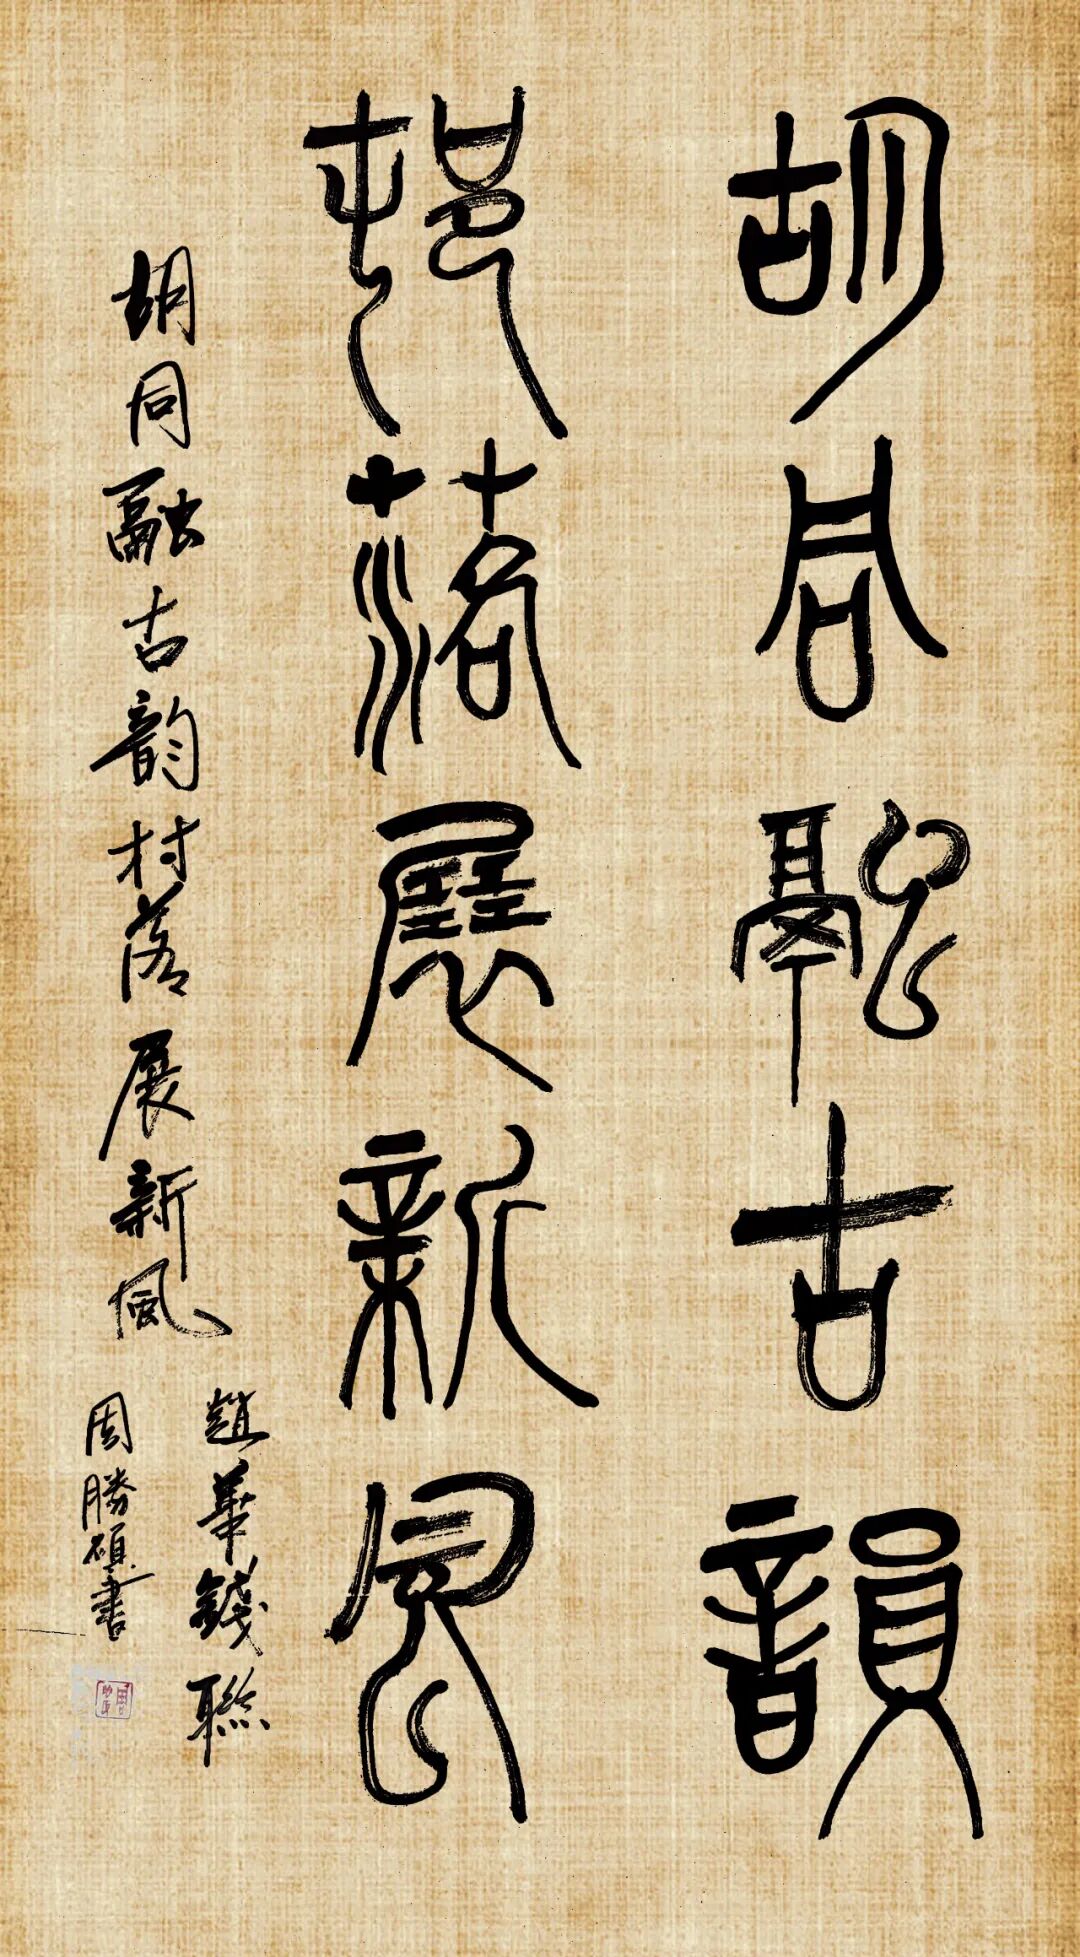 胡同融古韻
邨落展新風
胡同融古韵村落展新風
趙華錢聯
周勝碩書